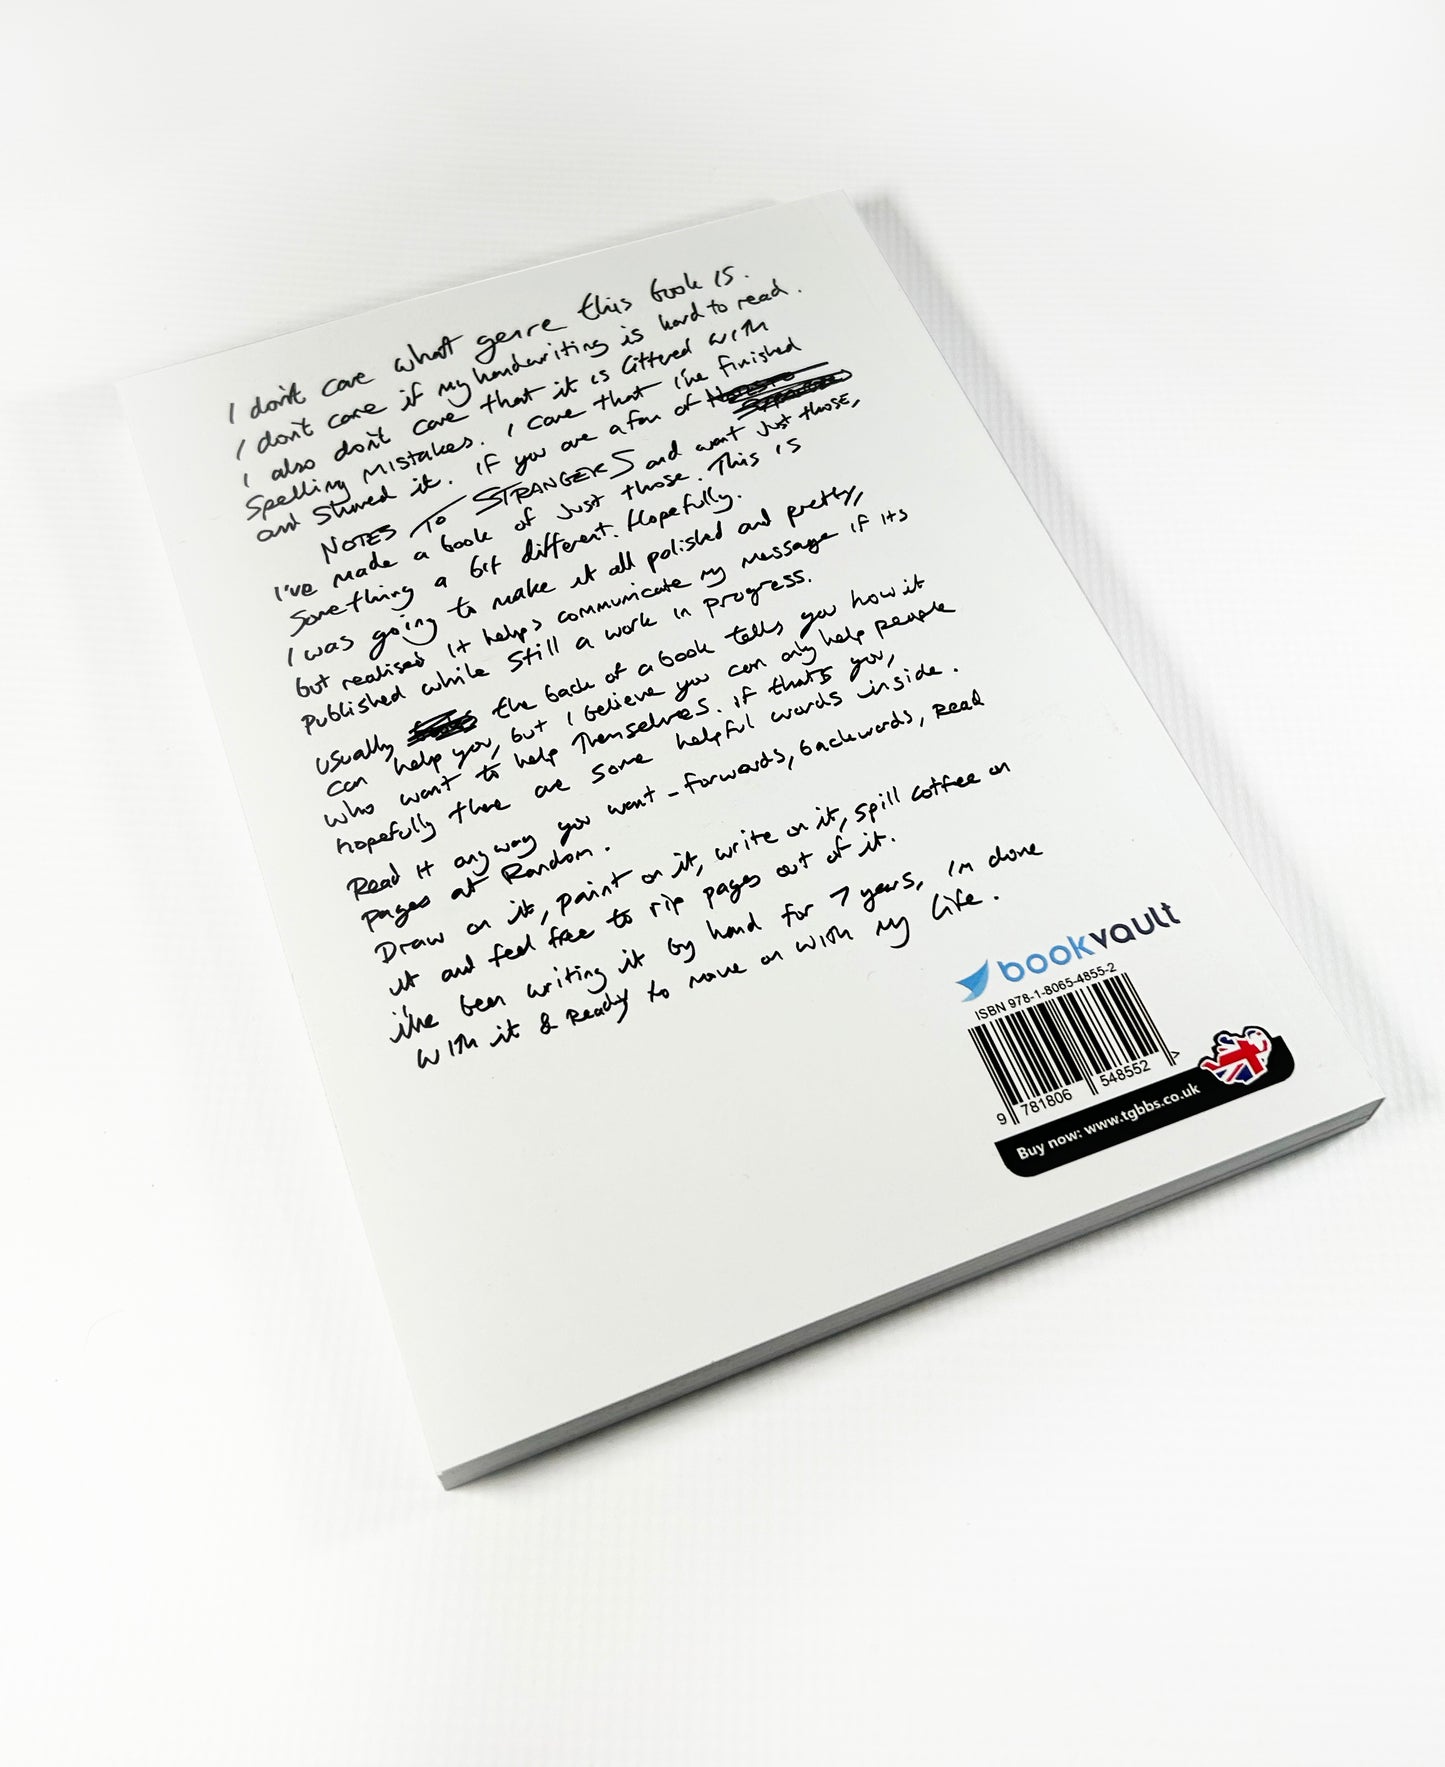 I don't care what genre this book is.
I don't care if my handwriting is hard to read.
I also don't care that it is littered with
spelling mistakes. I care that I've finished
and shared it. If you are a fan of
NOTES TO STRANGERS and want just those,
I've made a book of just those. This is
something a bit different. Hopefully.
I was going to make it all polished and pretty,
but realised it helps communicate my message if its
published while still a work in progress.
Usually the back of a book tells you how it
can help you, but I believe you can only help people
who want to help themselves. If thats you,
hopefully there are some helpful words inside.
Read it anyway you want - forwards, backwards, read
pages at random.
Draw on it, paint on it, write on it, spill coffee on
it and feel free to rip pages out of it.
I've been writing it by hand for 7 years, I'm done
with it & ready to move on with my life.
bookvault
ISBN 978-1-8065-4855-2
9 781806 548552 >
Buy now: www.tgbbs.co.uk